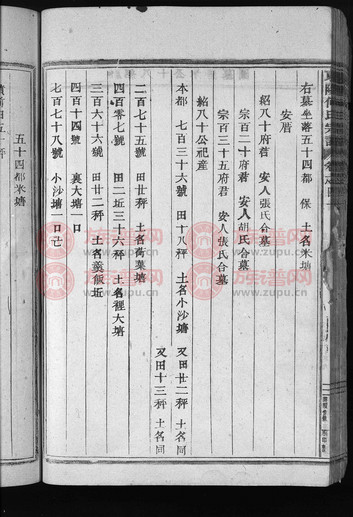 右墓坐落五十四都 保 土名米塘
安厝
紹八十府君 安人張氏合墓
宗百二十府君 安人胡氏合墓
宗百三十五府君 安人張氏合墓
紹八十公祀產
本都 七百三十六號 田十八秤 土名小沙塘 又田廿二秤 土名同
又田十三秤 土名同
二百七十五號 田廿秤 土名荷葉塘
四百零七號 田二坵三十六秤 土名裡大塘
三百六十六號 田廿二秤 土名羹飯坵
四百十四號 裏大塘一口
七百七十八號 小沙塘一口
五十四都米塘
族谱网
www.zupu.cn